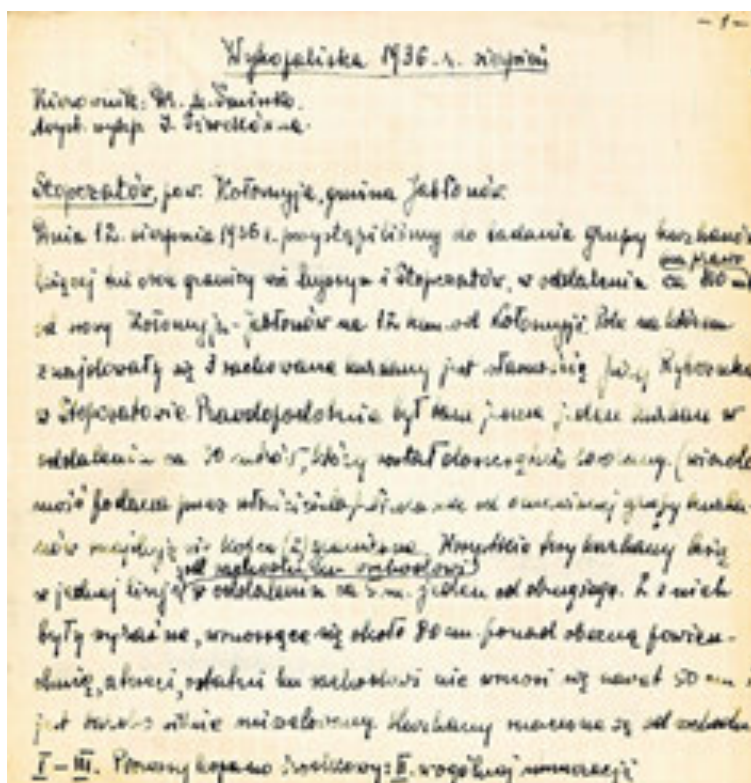 - 1 -
Wykopaliska 1936. r. sierpień
Kierownik: Dr. M. Śmiszko.
Stopczatów, pow. Kołomyja, gmina Jabłonów.
Dnia 12. sierpnia 1936 r. przystąpiliśmy do badania grupy kurhanów
na prawo
granicy wsi i Stopczatów, w oddaleniu ca 800 m
od Kołomyja-Jabłonów na 12 km. od Kołomyji. Pole na którem
znajdowały się 3 zachowane kurhany jest własnością
w Stopczatowie. Prawdopodobnie był tam jeden kurhan w
oddaleniu ca 30 który został doszczętnie (wiado
mość podana przez właściciela od grupy kurha
nów znajduje się kopiec (2) Wszystkie trzy kurhany leżą
od zachodu ku wschodowi
w jednej linji w oddaleniu ca 5. m. jeden od drugiego. 2 z nich
były wyraźne, wznoszące się około 80 cm. ponad obecną powierz-
chnię, a trzeci, ostatni ku zachodowi nie wznosi się nawet 50 cm
jest bardzo silnie niwelowany. Kurhany znaczone są od wschodu
I - III. kopano środkowy: II. w ogólnej numeracji